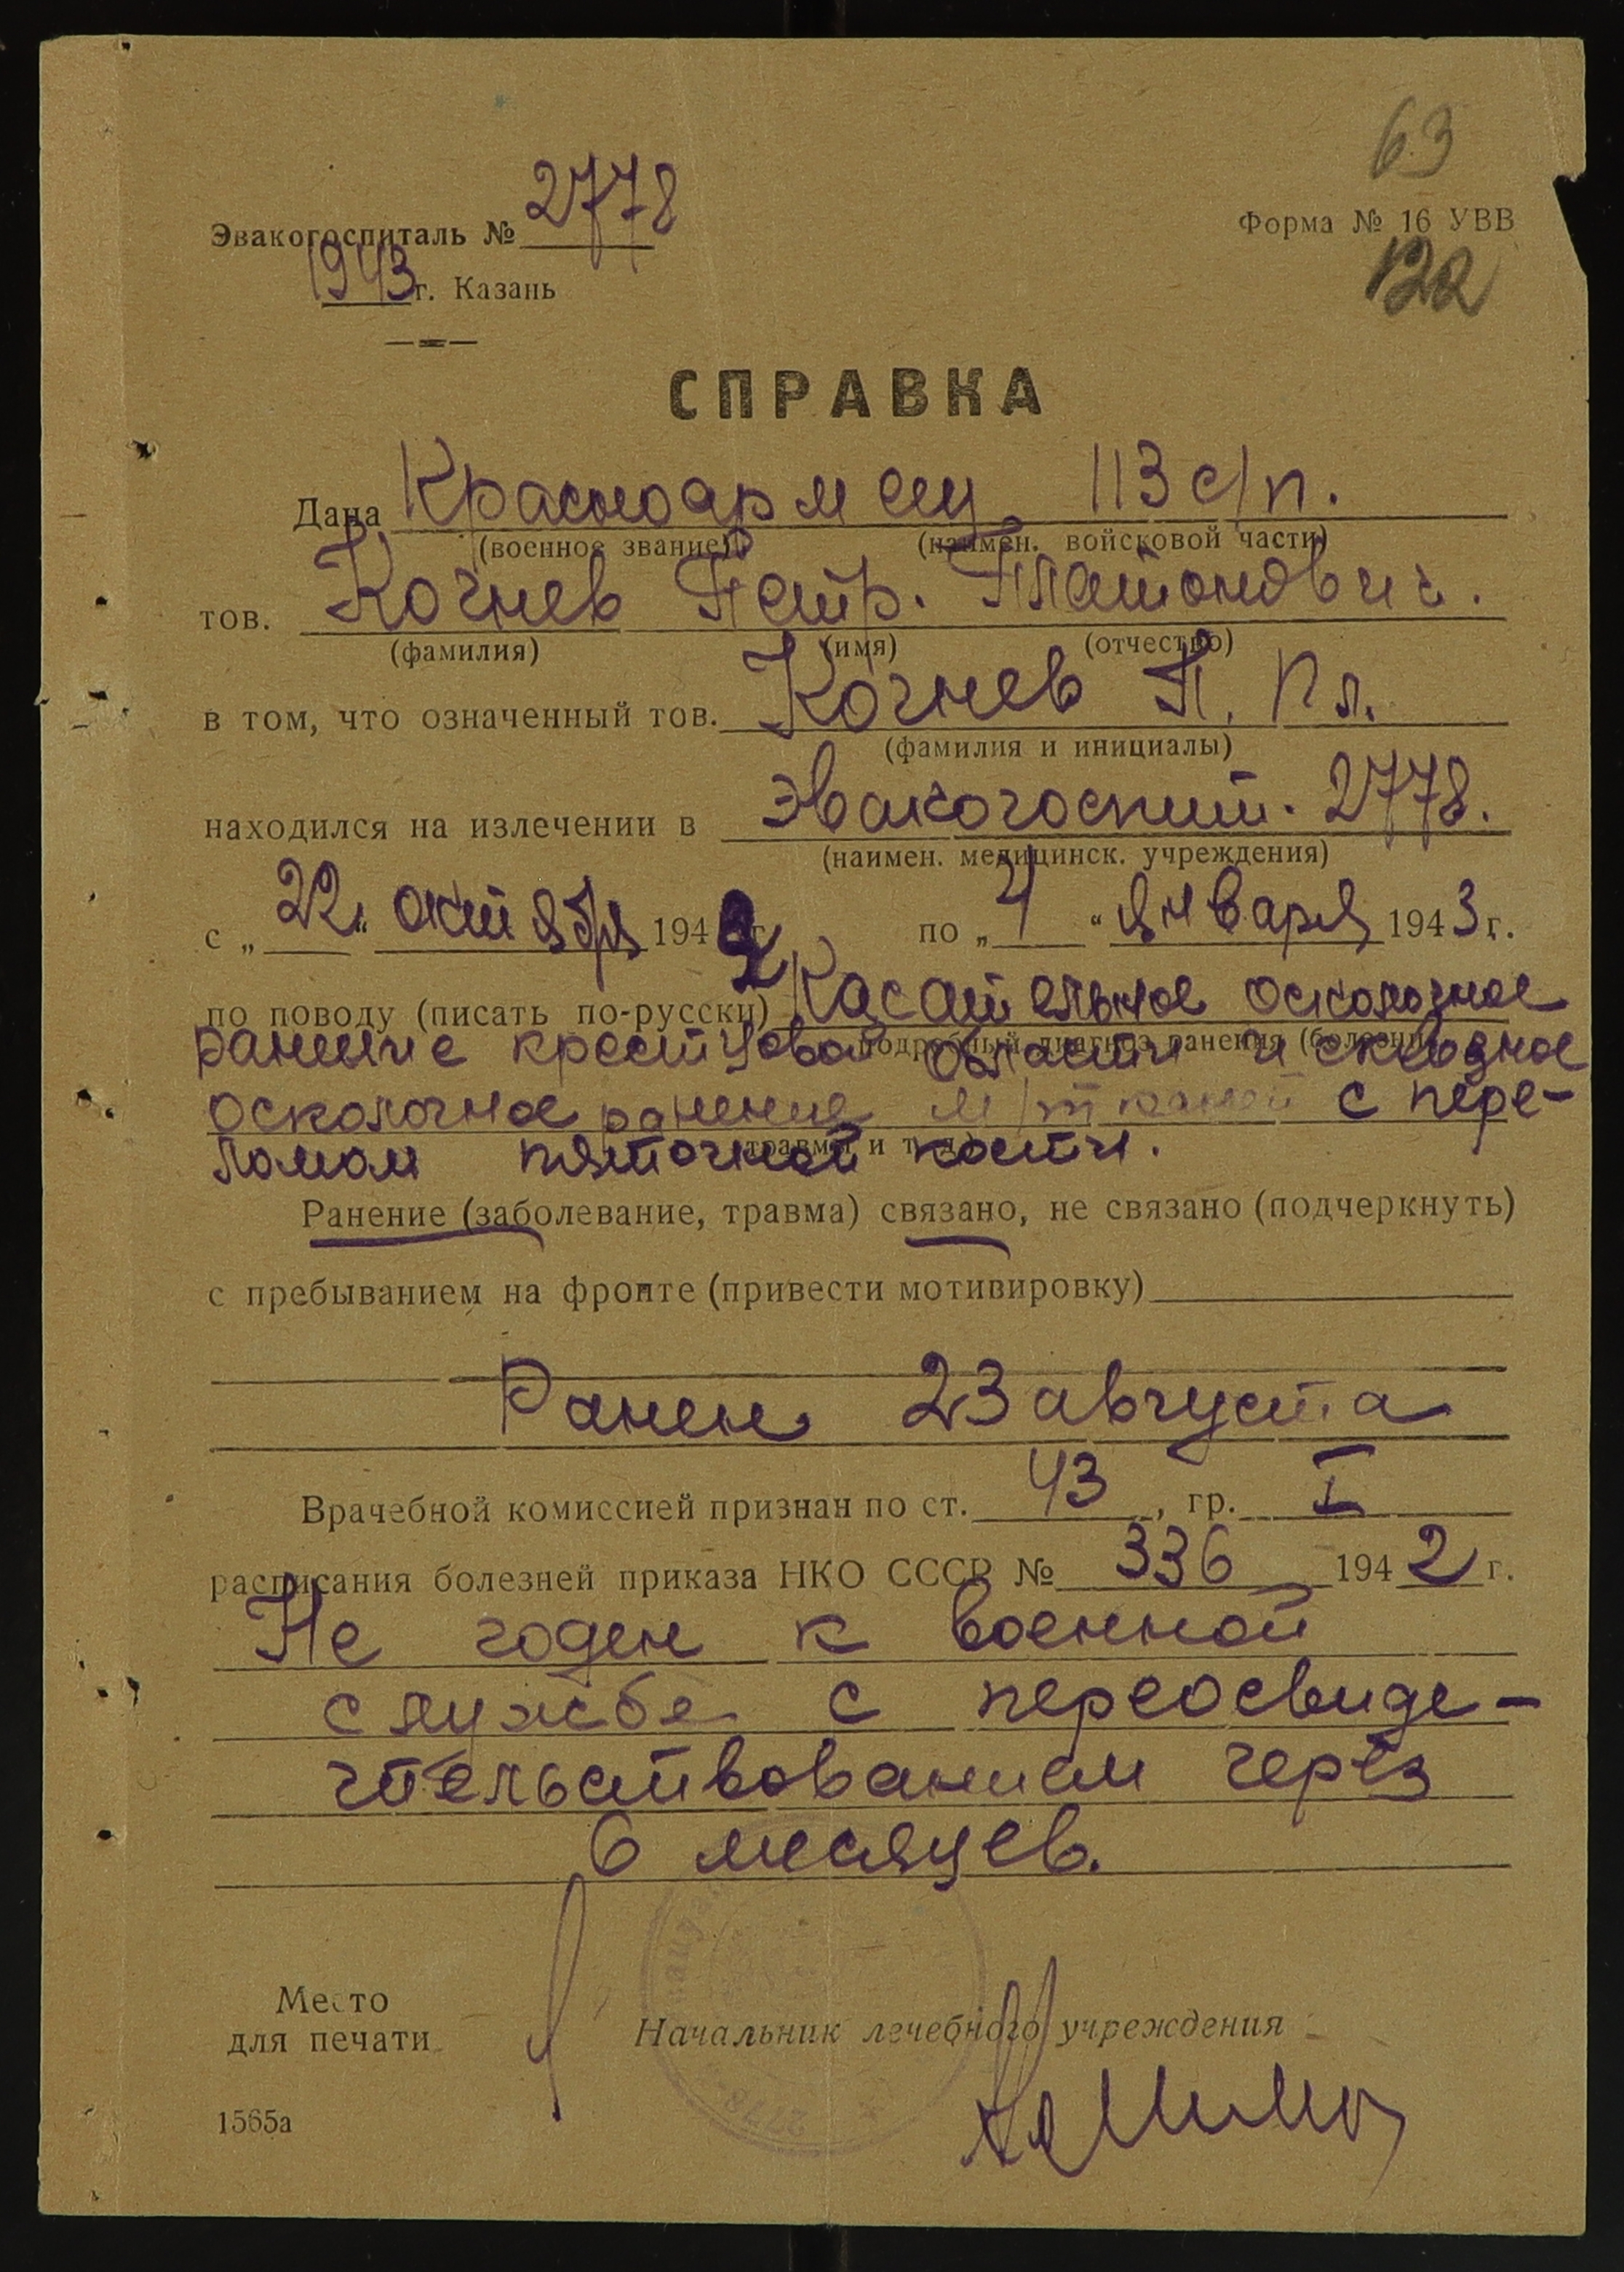 63
Эвакогоспиталь № 2778
Форма № 16 УВВ
1943 г. Казань
122
СПРАВКА
Дана Красноармеец 113 с/п.
(военное звание) (наимен. войсковой части)
тов. Кочнев Петр. Платонович.
(фамилия) (имя) (отчество)
в том, что означенный тов. Кочнев П. Пл.
(фамилия и инициалы)
находился на излечении в Эвакогоспит. 2778.
(наимен. медицинск. учреждения)
с „22" октября 1942 г. по „4" января 1943 г.
по поводу (писать по-русски) Касательное осколочное
подробный диагноз ранения (болезни
ранение крестцовой области и сквозное
осколочное ранение м/тканей с пере-
травмы и т. д.)
ломом пяточной кости.
Ранение (заболевание, травма) связано, не связано (подчеркнуть)
с пребыванием на фронте (привести мотивировку)
Ранен 23 августа
Врачебной комиссией признан по ст. 43, гр. I
расписания болезней приказа НКО СССР № 336 1942 г.
Не годен к военной
службе с переосвиде-
тельствованием через
6 месяцев.
Место
для печати
Начальник лечебного учреждения
1565а